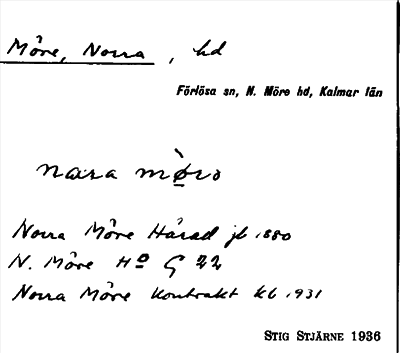 Möre, Norra, hd
Förlösa sn, N. Möre hd, Kalmar län
Norra Möre Härad jb 1880
N. Möre Hº G 22
Norra Möre Kontrakt kb 1931
Stig Stjärne 1936